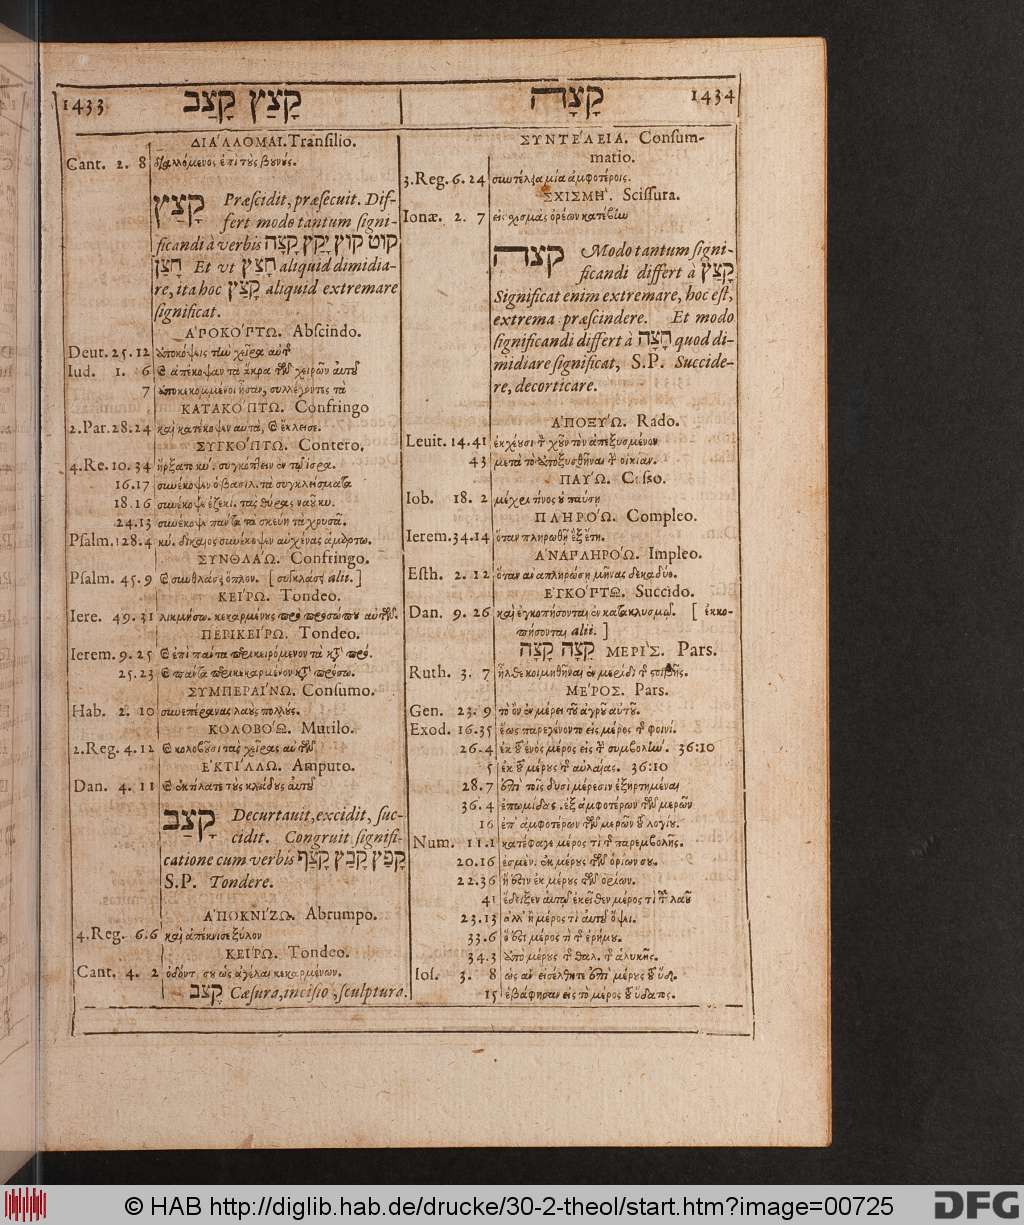 1433 קָצַץ קָצַב
קָצָה 1434
ΔΙΑ'ΛΛΟΜΑΙ. Tranſilio.
Cant. 2. 8 διαλλόμενος ἐπὶ τοὺς βουνούς.
קָצַץ Præſcidit, præſecuit. Dif-
fert modo tantum ſigni-
ficandi à verbis קוט קוץ יָקַץ קָצָה
חָצַן Et vt חָצַץ aliquid dimidia-
re, ita hoc קָצַץ aliquid extremare
ſignificat.
ἈΠΟΚΟ'ΠΤΩ. Abſcindo.
Deut. 25. 12 ἀποκόψεις τὴν χεῖρα αὐτῆς
Iud. 1. 6 καὶ ἀπέκοψαν τὰ ἄκρα τῶν χειρῶν αὐτοῦ
7 ἀποκεκομμένοι ἦσαν, συλλέγοντες τὰ
ΚΑΤΑΚΟ'ΠΤΩ. Confringo
2. Par. 28. 24 καὶ κατέκοψεν αυτά, καὶ ἔκλεισε.
ΣΥΓΚΟ'ΠΤΩ. Contero.
4. Re. 10. 34 ἤρξατο κύ. συγκόπτειν ἐν τῷ ἰσρα.
16. 17 συνέκοψεν ὁ βασιλ. τὰ συγκλείσματα
18. 16 συνέκοψε ἐζεκί. τὰς θύρας ναοῦ κυ.
24. 13 συνέκοψε πάντα τὰ σκεύη τὰ χρυσᾶ.
Pſalm. 128. 4 κύ. δίκαιος συνέκοψεν αὐχένας ἁμαρτω.
ΣΥΝΘΛΑ'Ω. Confringo.
Pſalm. 45. 9 καὶ συνθλάσει ὅπλον. [ συγκλάσει alit. ]
ΚΕΙ'ΡΩ. Tondeo.
Iere. 49. 31 λικμήσω. κεκαρμένους πρὸ προσώπου αὐτῶν.
ΠΕΡΙΚΕΙ'ΡΩ. Tondeo.
Ierem. 9. 25 καὶ ἐπὶ πάντα περικειρόμενον τὰ κατὰ πρό.
25. 23 καὶ πάντα περικεκαρμένον κατὰ πρόσω.
ΣΥΜΠΕΡΑΙ'ΝΩ. Conſumo.
Hab. 2. 10 συνεπέρανας λαοὺς πολλούς.
ΚΟΛΟΒΟ'Ω. Mutilo.
2. Reg. 4. 12 καὶ κολοβοῦσι τὰς χεῖρας αὐτῶν
ἘΚΤΙ'ΛΛΩ. Amputo.
Dan. 4. 11 καὶ ἐκτίλατε τοὺς κλάδους αὐτοῦ
קָצַב Decurtauit, excidit, ſuc-
cidit. Congruit ſignifi-
catione cum verbis קָפַץ קָבַץ קָצַף
S.P. Tondere.
ἈΠΟΚΝΙ'ΖΩ. Abrumpo.
4. Reg. 6. 6 καὶ ἀπέκνισε ξύλον
ΚΕΙ'ΡΩ. Tondeo.
Cant. 4. 2 ὀδόντ. σου ὡς ἀγέλαι κεκαρμένων.
קָצֶב Cæſura, inciſio, ſculptura.
ΣΥΝΤΕ'ΛΕΙΑ. Conſum-
matio.
3. Reg. 6. 24 συντέλεια μία ἀμφοτέροις.
ΣΧΙΣΜΗ'. Sciſſura.
Ionæ. 2. 7 εἰς σχισμὰς ὀρέων κατέβην
קצה Modo tantum ſigni-
ficandi differt à קָצַץ
Significat enim extremare, hoc eſt,
extrema præſcindere. Et modo
ſignificandi differt à חָצָה quod di-
midiare ſignificat, S.P. Succide-
re, decorticare.
ἈΠΟΞΥ'Ω. Rado.
Leuit. 14. 41 ἐκχέουσι τὸν χοῦν τὸν ἀπεξυσμένον
43 μετὰ τὸ ἀποξυσθῆναι τὴν οἰκίαν.
ΠΑΥ'Ω. Ceſſo.
Iob. 18. 2 μέχρι τίνος οὐ παύσῃ
ΠΛΗΡΟ'Ω. Compleo.
Ierem. 34. 14 ὅταν πληρωθῇ ἓξ ἔτη.
ἈΝΑΠΛΗΡΟ'Ω. Impleo.
Eſth. 2. 12 ὅταν ἀναπληρώσῃ μῆνας δεκαδύο.
ἘΓΚΟ'ΠΤΩ. Succido.
Dan. 9. 26 καὶ ἐγκοπήσονται ἐν κατακλυσμῷ. [ ἐκκο-
πήσονται alii. ]
קָצֶה קָצָה ΜΕΡΙ'Σ. Pars.
Ruth. 3. 7 ἦλθε κοιμηθῆναι ἐν μερίδι τῆς στοιβῆς.
ΜΕ'ΡΟΣ. Pars.
Gen. 23. 9 τὸ ὂν ἐν μέρει τοῦ ἀγροῦ αὐτοῦ.
Exod. 16. 35 ἕως παρεγένοντο εἰς μέρος τῆς φοινί.
26. 4 ἐκ τοῦ ἑνὸς μέρος εἰς τὴν συμβολήν. 36:10
5 ἐκ τοῦ μέρους τῆς αὐλαίας. 36:10
28. 7 ἐπὶ τοῖς δυσὶ μέρεσιν ἐξηρτημέναι
36. 4 ἐπωμίδας. ἐξ ἀμφοτέρων τῶν μερῶν
16 ἐπ' ἀμφοτέρων τῶν μερῶν τοῦ λογίου.
Num. 11. 1 κατέφαγε μέρος τὶ τῆς παρεμβολῆς.
20. 16 ἐσμὲν. ἐκ μέρους τῶν ὁρίων σου.
22. 36 ἥ ἐστιν ἐκ μέρους τῶν ὁρίων.
41 ἔδειξεν αὐτῷ ἐκεῖθεν μέρος τὶ τοῦ λαοῦ
23. 13 ἀλλ' ἢ μέρος τὶ αὐτοῦ ὄψει.
33. 6 ὅ ἐστι μέρος τὶ τῆς ἐρήμου.
34. 3 ἀπὸ μέρους τῆς θαλ. τῆς ἁλυκῆς.
Ioſ. 3. 8 ὡς ἂν εἰσέλθητε ἐπὶ μέρους τοῦ ὕδα.
15 ἐβάφησαν εἰς τὸ μέρος τοῦ ὕδατος.
© HAB http://diglib.hab.de/drucke/30-2-theol/start.htm?image=00725
DFG